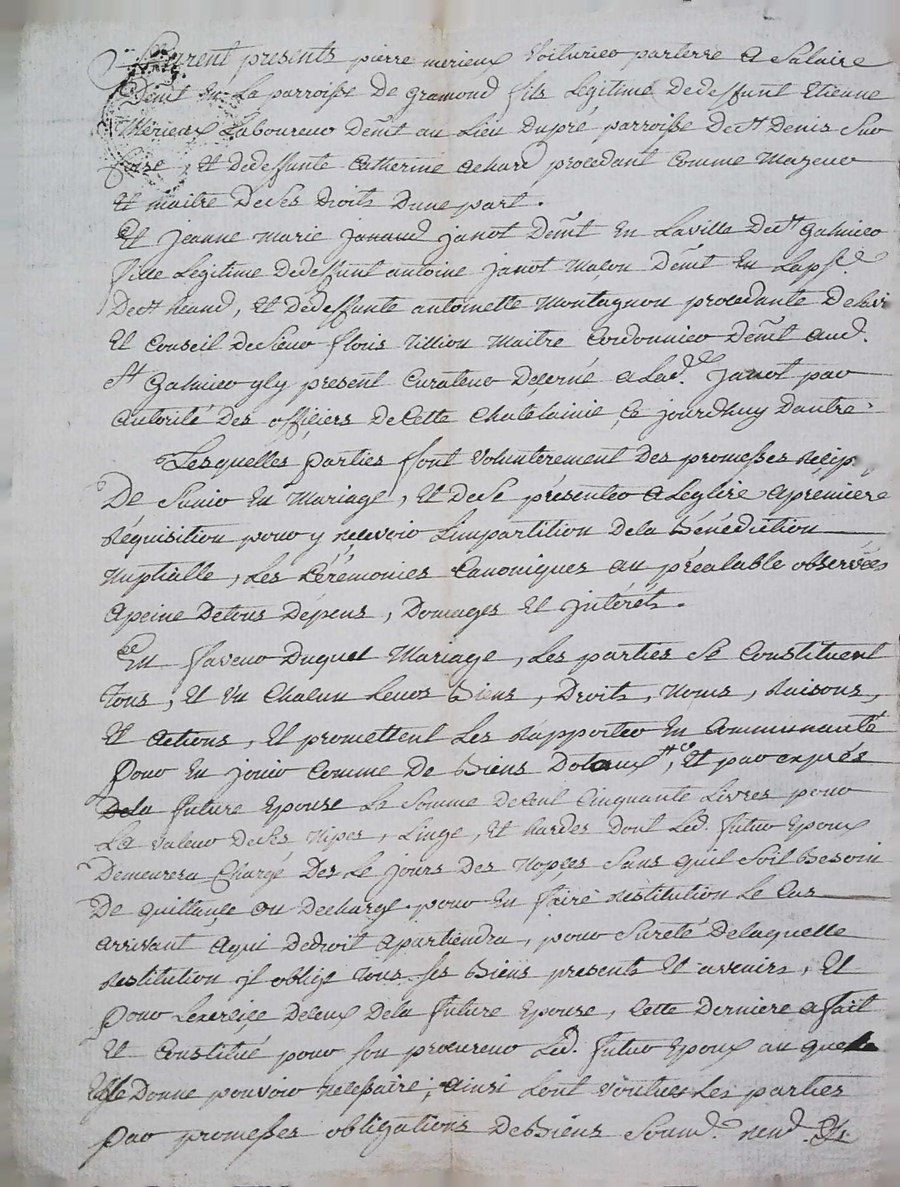 Furent presents pierre merieux Voiturier par terre a Salaire
Demt En La parroisse De Gramond fils Legitime De deffunt Etienne
Mérieux Laboureur Demt au Lieu Dupré parroisse De st Denis Sur
Coise, Et De deffunte Catherine achard procedant Comme Majeur
Et maitre De Ses Droits Dune part.
Et Jeanne Marie Janot Demt En La ville De st Galmier
fille Legitime De deffunt antoine Janot Maçon Demt En La psse
De st heand, Et De deffunte antoinette Montagnon procedante De Lavis
Et Conseil De Sieur floris Tillion Maitre Cordonnier Demt aud.
st Galmier y présent Curateur Décerné a Lade. Janot par
autorité Des officiers De Cette Chatelainie Ce jourdhuy Dautre.
Lesquelles parties font Volonterement Des promesses Récip.
De Sunir En Mariage, Et De Se présenter a Leglise a première
Réquisition pour y recevoir Limpartition De la Bénédiction
Nuptialle, Les Cérémonies Canoniques au préalable observées
a peine De tous Dépens, Domages Et jntérets.
En faveur Duquel Mariage, Les parties Se Constituent
tous, Et Un Chacun Leurs Biens, Droits, Noms, Raisons,
Et actions, Et promettent Les Rapporter En Communauté
pour En jouir Comme De Biens Dotaux, Et par exprés
De La future Epouse La Somme De Cent Cinquante Livres pour
La valeur De Ses Nipes, Linge, Et hardes Dont Led. futur Epoux
Demeurera Chargé Des Le jours Des Nopces Sans quil Soit Besoin
De quittance ou Decharge pour En faire Restitution Le Cas
arrivant a qui De droit apartiendra, pour Sureté De laquelle
Restitution il oblige tous Ses Biens presents Et avenirs, Et
pour Lexercice De Ceux De la future Epouse, Cette Derniere a fait
Et Constitué pour Son procureur Led. futur Epoux au quel
Elle Donne pouvoir necessaire, ainsi Lont Voulues Les parties
par promesses obligations De Biens Soumd. Rend. &.